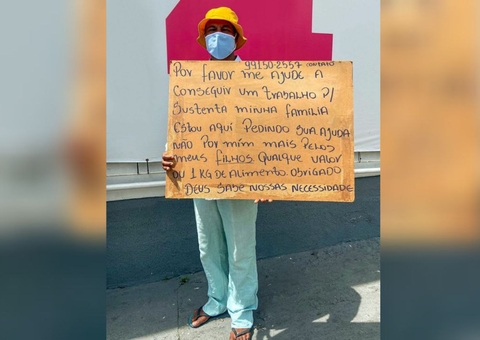 99150-2557 CONTATO
POR FAVOR ME AJUDE A
CONSEGUIR UM TRABALHO P/
SUSTENTA MINHA FAMILIA
ESTOU AQUI PEDINDO SUA AJUDA
NÃO POR MIM MAIS PELOS
MEUS FILHOS. QUALQUE VALOR
OU 1 KG DE ALIMENTO. OBRIGADO
DEUS SABE NOSSAS NECESSIDADE